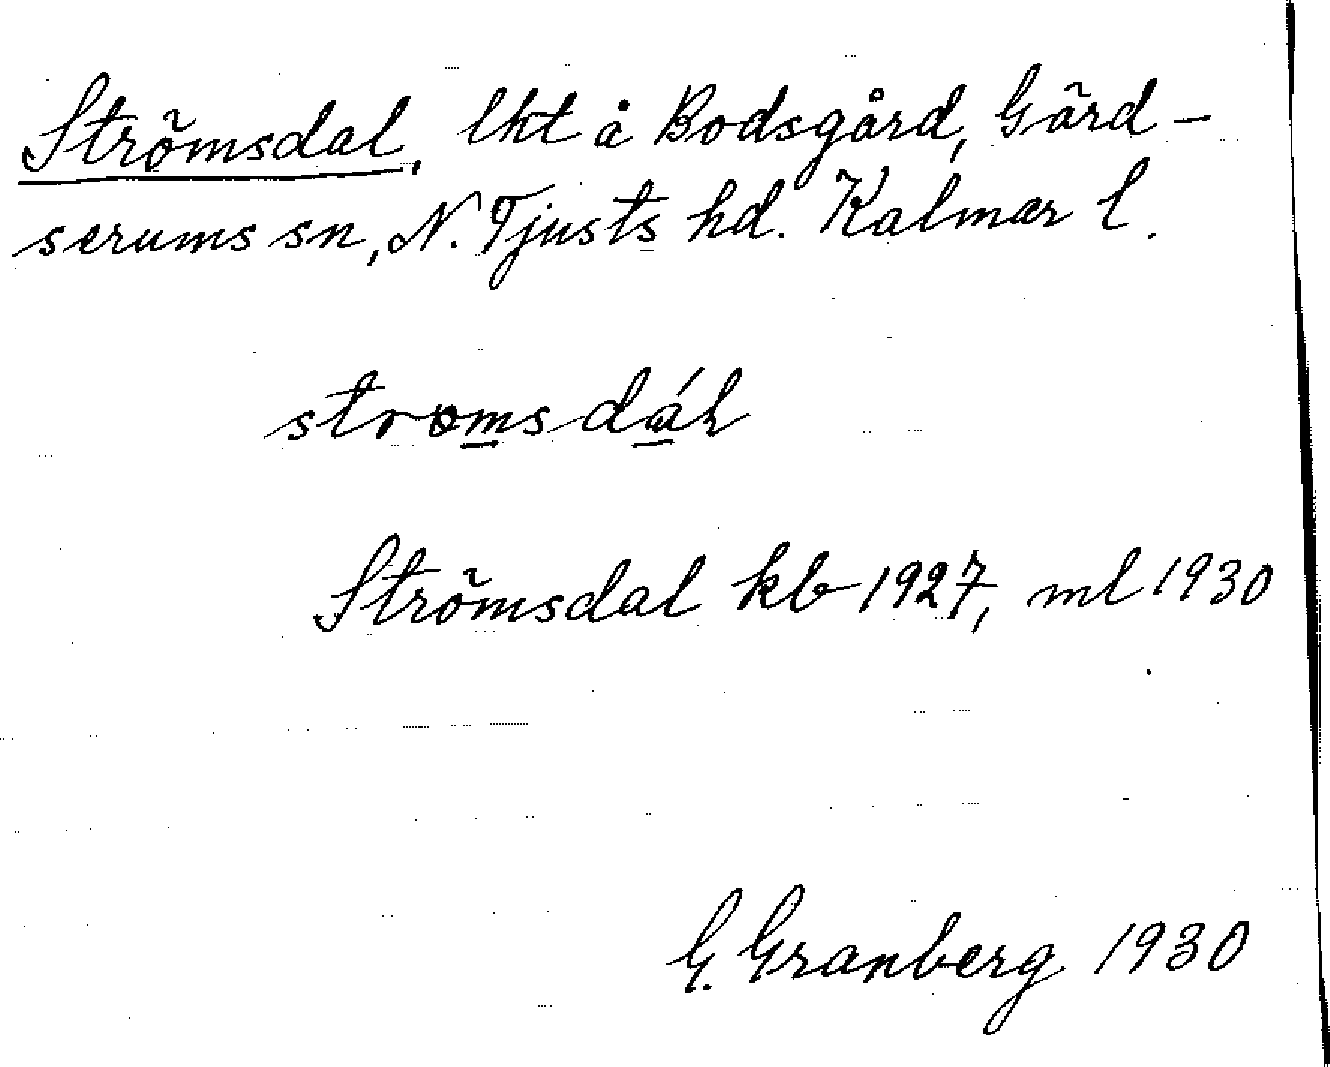 Strömsdal, lht å Bodsgård, Gärd-
serums sn, N. Tjusts hd. Kalmar l.
strømsdál
Strömsdal kb 1927, ml 1930
G. Granberg 1930